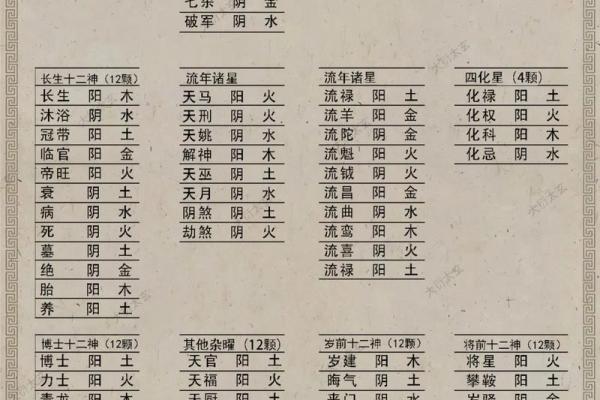 七杀 阴 金
破军 阴 水
长生十二神（12颗）
长生 阳 木
沐浴 阴 水
冠带 阳 土
临官 阳 金
帝旺 阳 火
衰 阴 土
病 阴 水
死 阴 火
墓 阴 土
绝 阴 金
胎 阳 木
养 阳 土
流年诸星
天马 阳 火
天刑 阴 火
天姚 阴 水
解神 阳 木
天巫 阴 土
天月 阴 水
阴煞 阴 土
劫煞 阴 火
流年诸星
流禄 阳 土
流羊 阳 金
流陀 阴 金
流魁 阳 火
流钺 阴 火
流昌 阳 金
流曲 阴 水
流鸾 阳 木
流喜 阴 火
流禄 阳 土
四化星（4颗）
化禄 阳 土
化权 阳 火
化科 阳 木
化忌 阴 水
博士十二神（12颗）
博士 阳 土
力士 阳 火
青龙 阳 水
其他杂曜（12颗）
天官 阳 土
天福 阳 火
天厨 阳 土
岁前十二神（12颗）
岁建 阳 木
晦气 阴 水
阴 水
将前十二神（12颗）
将星 阳 火
攀鞍 阳 土
岁驿 阴 金
大衍太玄
大衍太玄
大衍太玄